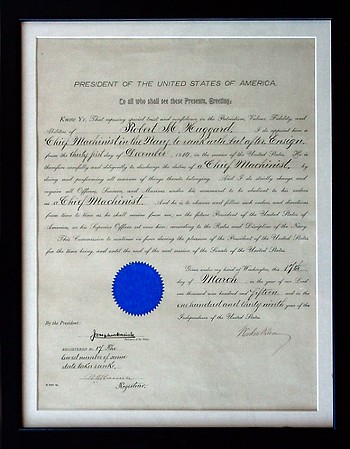 PRESIDENT OF THE UNITED STATES OF AMERICA.
To all who shall see these Presents, Greeting:
Know Ye, That reposing special trust and confidence in the Patriotism, Valour, Fidelity, and
Abilities of Robert M. Huggard I do appoint him a
Chief Machinist in the Navy, to rank with but after Ensign
from the thirty first day of December, in the service of the United States. He is
therefore carefully and diligently to discharge the duties of a Chief Machinist, by
doing and performing all manner of things thereto belonging. And I do strictly charge and
require all Officers, Seamen, and Marines under his command to be obedient to his orders
as a Chief Machinist. And he is to observe and follow such orders, and directions
from time to time as he shall receive from me, or the future President of the United States of
America, or his Superior Officer set over him, according to the Rules and Discipline of the Navy.
This Commission to continue in force during the pleasure of the President of the United States
for the time being, and until the end of the next session of the Senate of the United States.
Given under my hand at Washington, this 17th
day of March in the year of our Lord
one thousand nine hundred and fifteen and in the
one hundred and thirty ninth year of the
Independence of the United States.
By the President:
Woodrow Wilson
Josephus Daniels
Secretary of the Navy.
REGISTERED No. 17. The
lowest number of same
date takes rank.
Register.